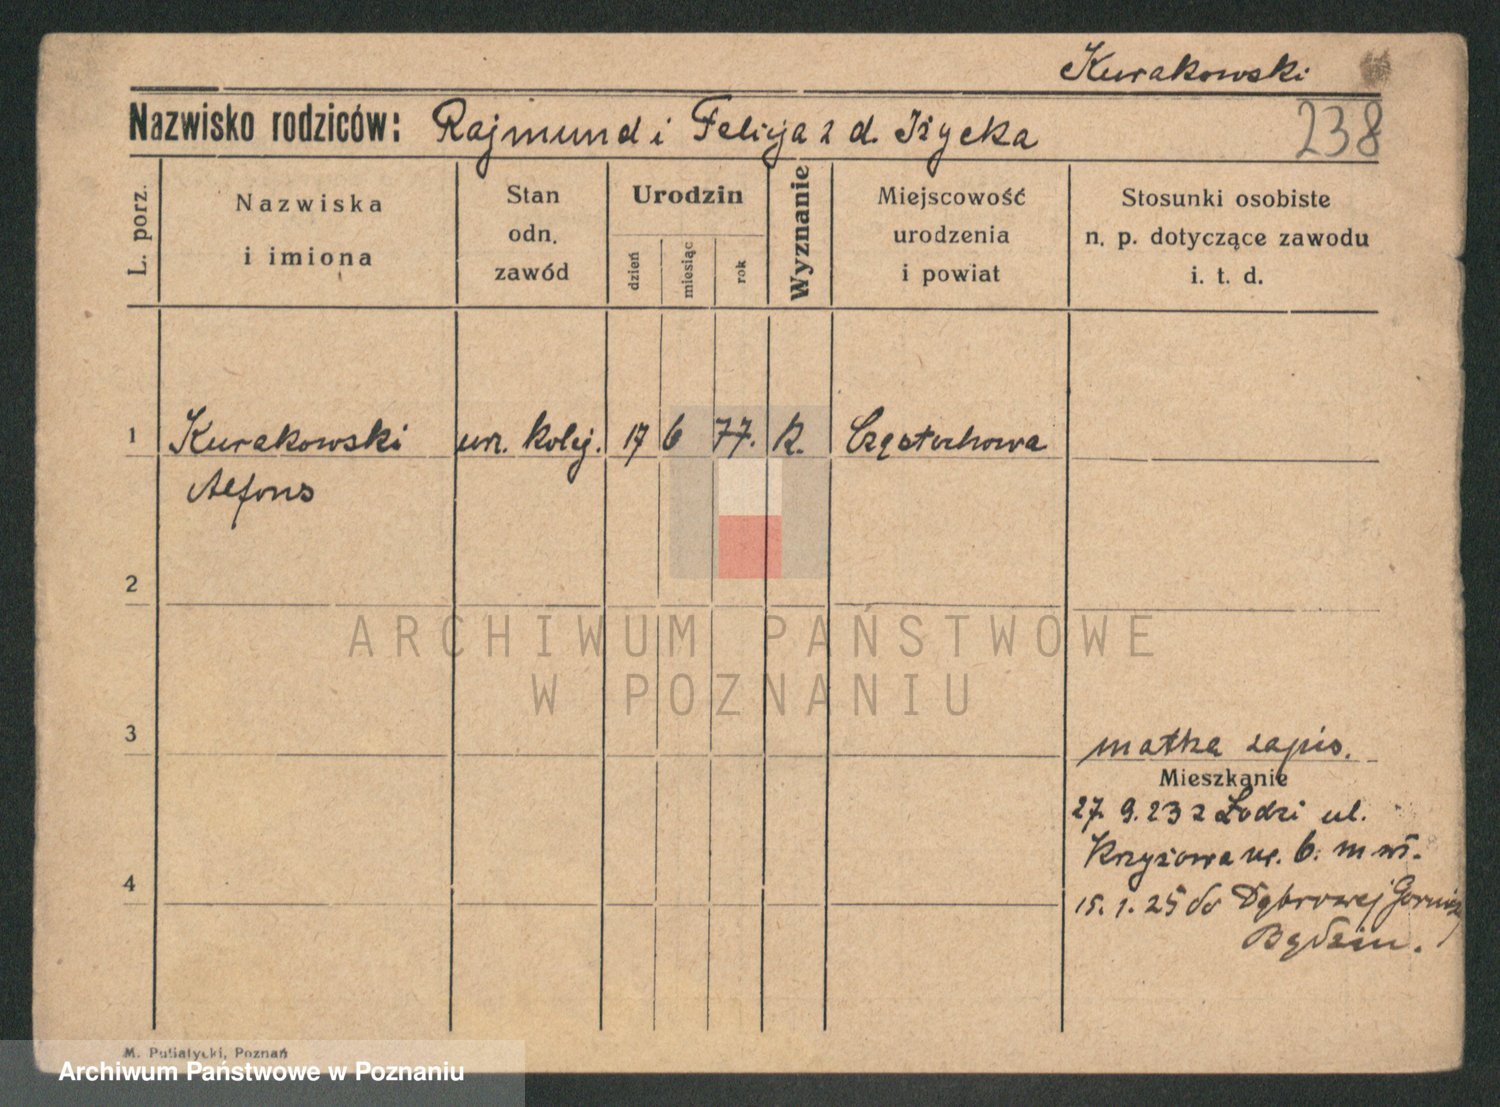 Kurakowski
Nazwisko rodziców: Rajmund i Felicja z d. Iżycka
238
L. porz.
Nazwiska
i imiona
Stan
odn.
zawód
Urodzin
dzień
miesiąc
rok
Wyznanie
Miejscowość
urodzenia
i powiat
Stosunki osobiste
n. p. dotyczące zawodu
i. t. d.
1 Kurakowski urz. kolej. 17 6 77. R. Częstochowa
Alfons
2
ARCHIWUM PAŃSTWOWE
W POZNANIU
3
matka zapis.
Mieszkanie
27. 9. 23 z Łodzi ul.
Krzyżowa nr. 6. m wł.
4
15. 1. 25 do Dąbrowej Gornicz
Będzin.
M. Putiatycki, Poznań
Archiwum Państwowe w Poznaniu